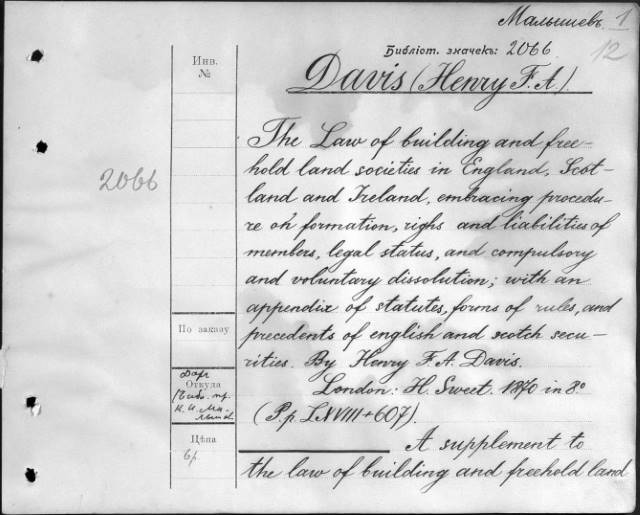 Малышевъ. 1
12
Библіот. значекъ: 2066
Davis (Henry F. A.).
Инв.
№
2066
The Law of building and free-
hold land societies in England, Scot-
land and Ireland, embracing procedu-
re on formation, righs and liabilities of
members, legal status, and compulsory
and voluntary dissolution; with an
appendix of statutes, forms of rules, and
precedents of english and scotch secu-
rities. By Henry F. A. Davis.
London: H. Sweet. 1870 in 8º
(P.p. LXVIII+607).
A supplement to
the law of building and freehold land
По заказу
Даръ
Откуда
К. И. Ма-
Цѣна
6р.